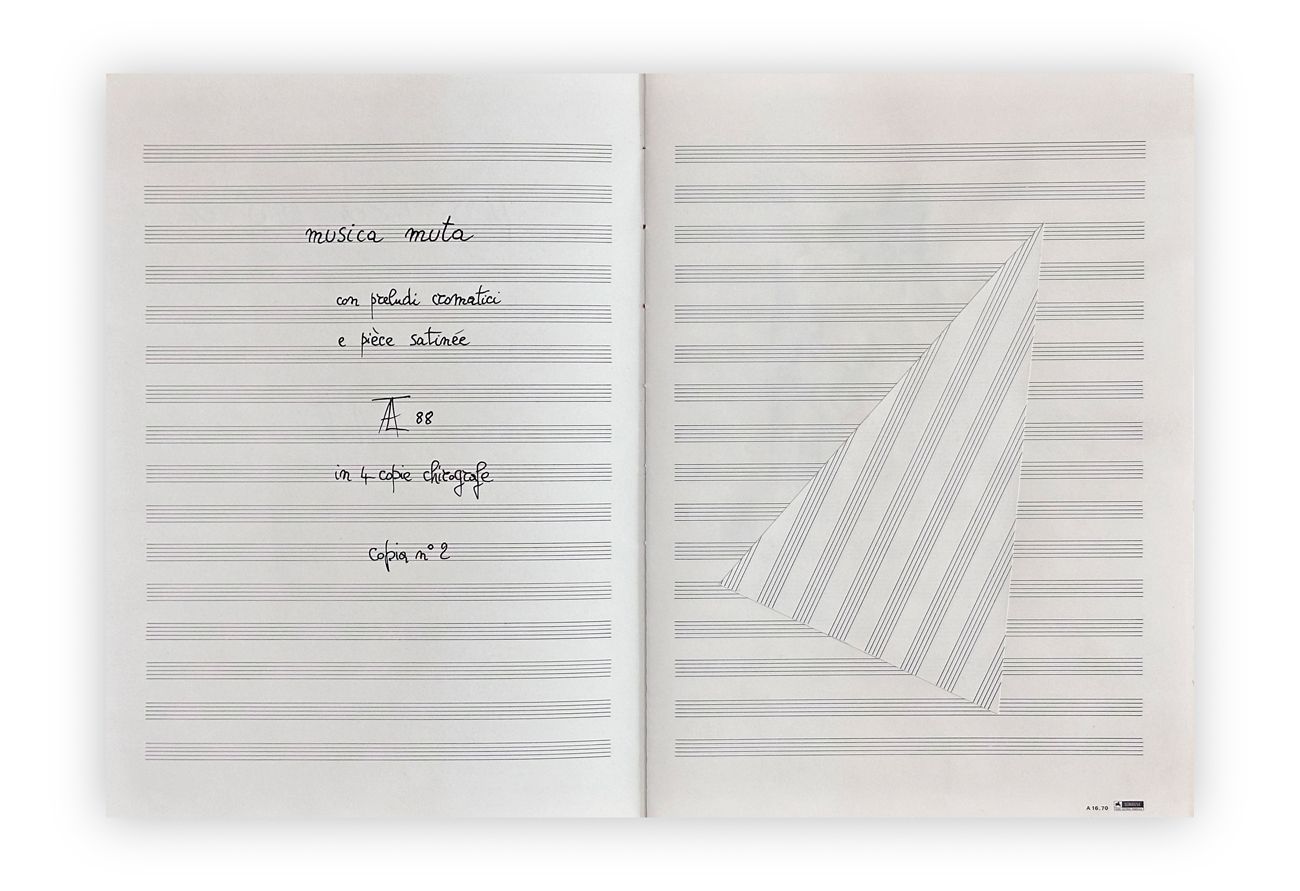 musica muta
con preludi cromatici
e pièce satinée
AL 88
in 4 copie chirografe
copia n° 2
A 16.70